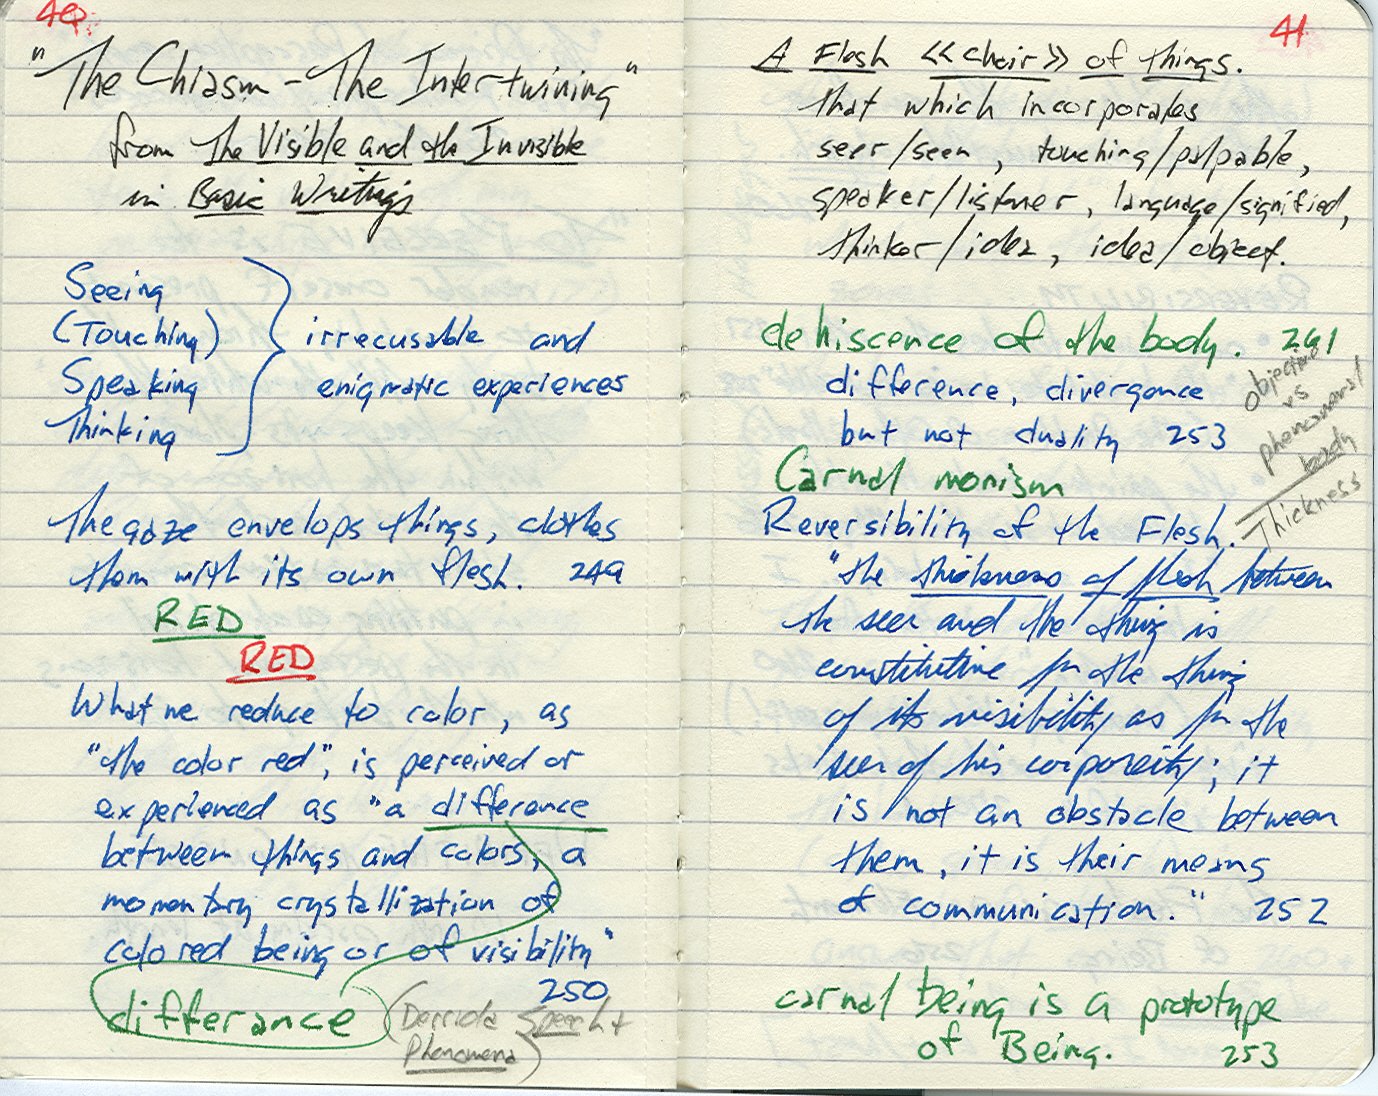 40.
"The Chiasm – The Intertwining"
from The Visible and the Invisible
in Basic Writings
Seeing
(Touching)
Speaking
Thinking
irrecusable and
enigmatic experiences
The gaze envelops things, clothes
them with its own flesh. 249
RED
RED
What we reduce to color, as
"the color red", is perceived or
experienced as "a difference
between things and colors, a
momentary crystallization of
colored being or of visibility"
250
differance
(Derrida Speech +
Phenomena)
41
A Flesh «chair» of things.
that which incorporates
seer/seen, touching/palpable,
speaker/listener, language/signified,
thinker/idea, idea/object.
dehiscence of the body. 261
difference, divergance
but not duality 253
Objective
vs
phenomenal
body
Thickness
Carnal monism
Reversibility of the Flesh.
"the thickness of flesh between
the seer and the thing is
constitutive for the thing
of its visibility as for the
seer of his corporeity; it
is not an obstacle between
them, it is their means
of communication." 252
carnal being is a prototype
of Being. 253